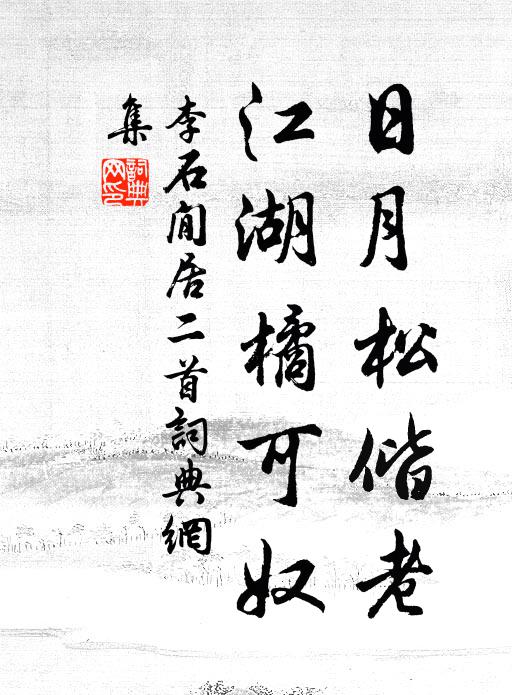 日月松偕老
江湖橘可奴
李石閒居二首詞典網
集
詞典
网印